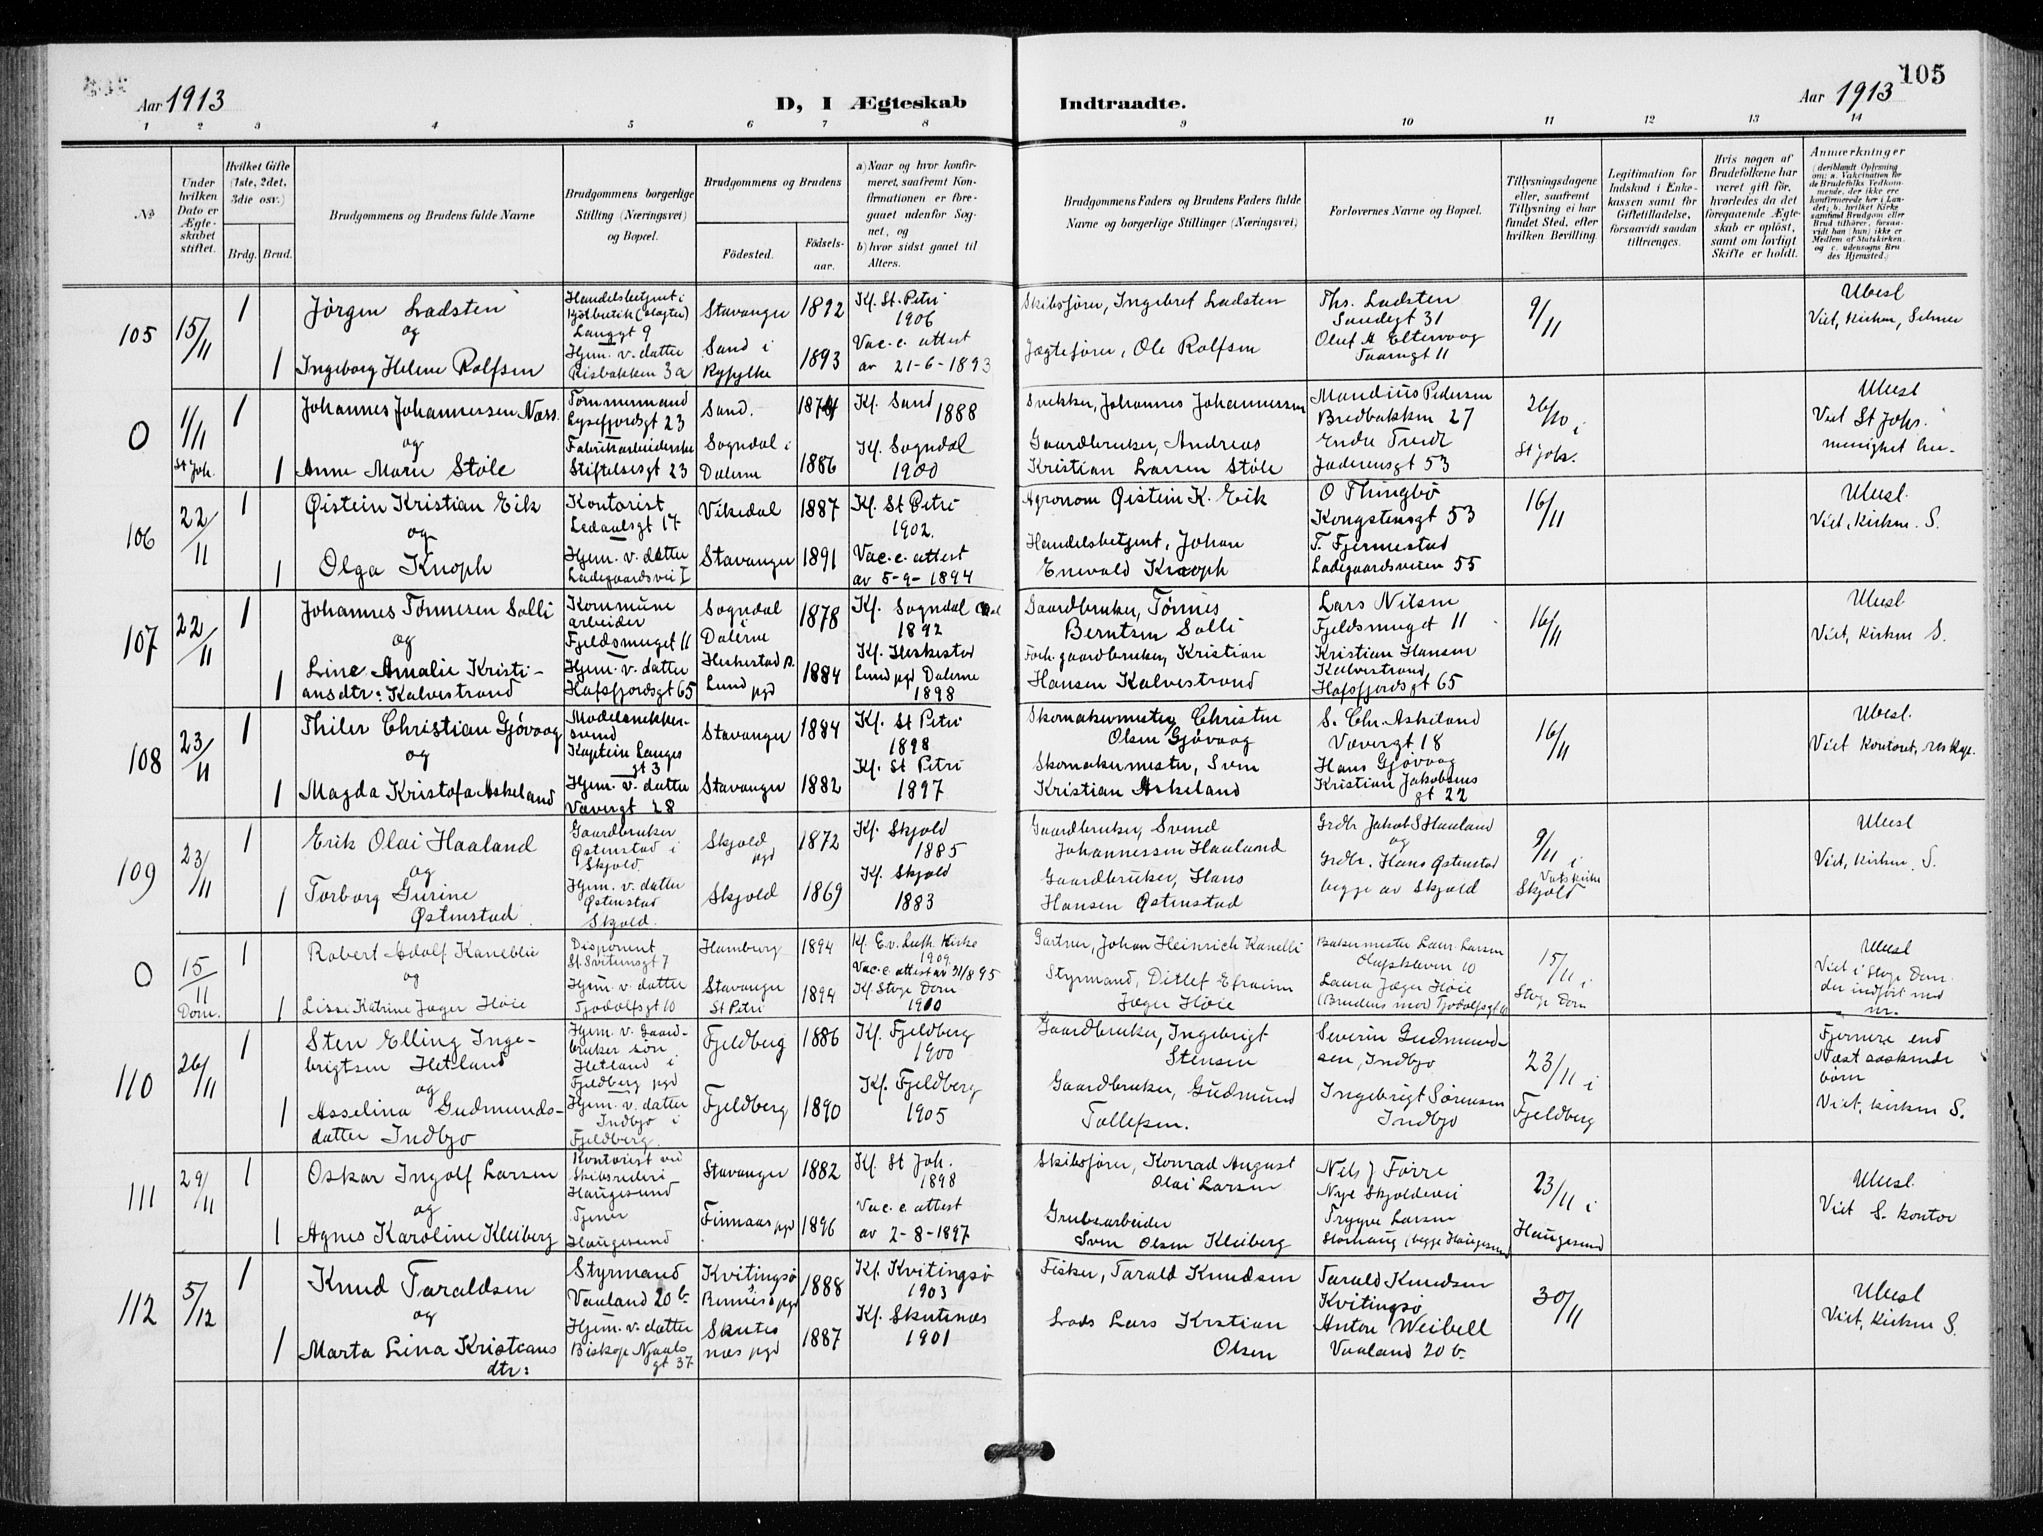 105
Aar 1913
D, I Ægteskab
Indtraadte.
Aar 1913
1 2 3 4 5 6 7 8 9 10 11 12 13 14
No
Under hvilken Dato er Ægteskabet stiftet.
Hvilket Gifte (1ste, 2det, 3die osv.)
Brdg. Brud.
Brudgommens og Brudens fulde Navne
Brudgommens borgerlige Stilling (Næringsvei) og Bopæl.
Brudgommens og Brudens
Födested.
Födselsaar.
a) Naar og hvor konfirmeret, saafremt Konfirmationen er foregaaet udenfor Sognet, og
b) hvor sidst gaaet til Alters.
Brudgommens Faders og Brudens Faders fulde Navne og borgerlige Stillinger (Næringsvei)
Forlovernes Navne og Bopæl.
Tillysningsdagene eller, saafremt Tillysning ei har fundet Sted, efter hvilken Bevilling.
Legitimation for Indskud i Enkekassen samt for Giftetilladelse, forsaavidt saadan tiltrænges.
Hvis nogen af Brudefolkene har været gift för, hvorledes da det foregaaende Ægteskab er oplöst, samt om lovligt Skifte er holdt.
Anmærkninger (deriblandt Oplysning om: a. Vakcination for de Brudefolks Vedkommende, der ikke ere konfirmerede her i Landet; b. hvilket Kirkesamfund Brudgom eller Brud tilhörer, forsaavidt han (hun) ikke er Medlem af Statskirken, og c. udensogns Brudes Hjemsted.)
105 15/11 1
Jørgen Ladsten
og
1 Ingeborg Helene Rolfsen
Handelsbetjent i
Kjødbutik (slagter)
Langgt 9
Hjem. v. datter
Risbakken 3a
Stavanger 1892
Sand i
Ryfylke 1893
Kf. St. Petri
1906
Vac. c. attest
av 21-6-1893
Skibsfører, Ingebret Ladsten
Jægtefører, Ole Rolfsen
Ths. Ladsten
Sandegt 31
Oluf H Eltervaag
Taarngt 11
9/11
Ubesl
Viet, Kirken, Selmer
0 1/11 St Joh. 1
Johannes Johannessen Næss.
og
1 Anne Marie Støle
Tømmermand
Lysefjordsgt 23
Fabrikarbeiderske
Stiftelsesgt 23
Sand. 1874
Sogndal i
Dalerne 1886
Kf. Sand
1888
Kf. Sogndal
1900
Snekker, Johannes Johannessen
Gaardbruker, Andreas
Kristian Larsen Støle
Mandius Pedersen
Bredbakken 27
Endre Tveit
Jaderensgt 53
26/10 i
St Joh.
Ubesl
Viet St Johs.
menighet her.
106 22/11 1
Øistein Kristian Eik
og
1 Olga Knoph
Kontorist
Ledaalsgt 17
Hjem. v. datter
Ladegaardsvei I
Vikedal 1887
Stavanger 1891
Kf. St Petri
1902.
Vac. c. attest
av 5-9-1894
Agronom Øistein K. Eik
Handelsbetjent, Johan
Enevald Knoph
O Thingbø
Kongstensgt 53
T. Fjermestad
Ladegaardsveien 55
16/11
Ubesl.
Viet, Kirken. S.
107 22/11 1
Johannes Tønnesen Solli
og
1 Line Amalie Kristi-
ansdtr: Kalvestrand
Kommune
arbeider
Fjeldsmuget 11
Hjem. v. datter
Hafsfjordsgt 65
Sogndal
i
Dalerne 1878
Heskestad s.
Lund pgd 1884
Kf. Sogndal Dal
1892
Kf. Heskestad
Lund pgd Dalerne
1898
Gaardbruker, Tønnes
Berntsen Solli
Forh. gaardbruker, Kristian
Hansen Kalvestrand
Lars Nilsen
Fjeldsmuget 11
Kristian Hansen
Kalvestrand,
Hafsfjordsgt 65
16/11
Ubesl
Viet, Kirken S.
108 23/11 1
Thiler Christian Gjøvaag
og
1 Magda Kristofa Askeland
Modelsnekker-
svend
Kaptein Langes
gt 3
Hjem. v. datter
Vævergt 28
Stavanger 1884
Stavanger 1882
Kf. St Petri
1898
Kf. St Petri
1897
Skomakermester, Christen
Olsen Gjøvaag
Skomakermester, Sven
Kristian Askeland
S. Chr. Askeland
Vævergt 18
Hans Gjøvaag
Kristian Jakobsens
gt 22
16/11
Ubesl.
Viet Kontoret, res kap.
109 23/11 1
Erik Olai Haaland
og
1 Torborg Gurine
Østenstad
Gaardbruker
Østenstad i
Skjold
Hjem. v. datter
Østenstad
Skjold.
Skjold
pgd 1872
Skjold 1869
Kf. Skjold
1885
Kf. Skjold
1883
Gaardbruker, Svend
Johannessen Haaland
Gaardbruker, Hans
Hansen Østenstad
Grdbr Jakob S Haaland
og
Grdbr. Hans Østenstad
begge av Skjold
9/11 i
Vatskirke
Skjold
Ubesl
Viet, Kirken. S.
0 15/11 Dom. 1
Robert Adolf Kaneblie
og
1 Lisse Katrine Jæger Høie
Disponent
St. Svitunsgt 7
Hjem. v. datter
Tjodolfsgt 10
Hamburg 1894
Stavanger
St Petri 1894
Kf. Ev. Luth. Kirke
1909.
Vac. c. attest av 31/8 95
Kf Stvgr Dom
1910
Gartner, Johan Heinrich Kanelli
Styrmand, Ditlef Efraim
Jæger Høie
Bakermester Laur. Larsen
Olafskleven 10
Laura Jæger Høie
(Brudens mor Tjodolfsgt 10
15/11 i
Stvgr Dom
Ubesl
Viet i Stvgr Dom.
der indført med
nr.
110 26/11 1
Sten Elling Inge-
brigtsen Hetland
og
1 Asselina Gudmunds-
datter Indbjo
Hjem. v. Gaard-
bruker søn
Hetland i
Fjeldberg pgd
Hjem. v. datter
Indbjo i
Fjeldberg.
Fjeldberg 1886
Fjeldberg 1890
Kf. Fjeldberg
1900
Kf. Fjeldberg
1905
Gaardbruker, Ingebrigt
Stensen
Gaardbruker, Gudmund
Tollefsen.
Severin Gudmund-
sen, Indbjo
Ingebrigt Sørensen
Indbjo
23/11 i
Fjeldberg
Fjernere end
Næst søskende
børn
Viet, Kirken S.
111 29/11 1
Oskar Ingolf Larsen
og
1 Agnes Karoline Kleiberg
Kontorist ved
Skibsrederi
Haugesund
Tjener
Haugesund
Stavanger 1882
Finnaas pgd 1896
Kf. St Joh.
1898
Vac. c. attest
av 2-8-1897
Skibsfører, Konrad August
Olai Larsen
Grubearbeider
Sven Olsen Kleiberg
Nils J Førre
Nye Skjoldevei
Trygve Larsen
Storhaug, begge Haugesund
23/11 i
Haugesund
Ubesl.
Viet S. kontor
112 5/12 1
Knud Taraldsen
og
1 Marta Lina Kristians
dtr:
Styrmand
Vaaland 20 b
Hjem. v. datter
Biskop Njaals
gt 37
Kvitingsø
Rennesø pgd 1888
Skutes
næs pgd 1887
Kf. Kvitingsø
1903
Kf. Skutenæs
1901
Fisker, Tarald Knudsen
Lods Lars Krstian
Olsen
Tarald Knudsen
Kvitingsø
Anton Weibell
Vaaland 20 b
30/11
Ubesl
Viet, Kirken S.